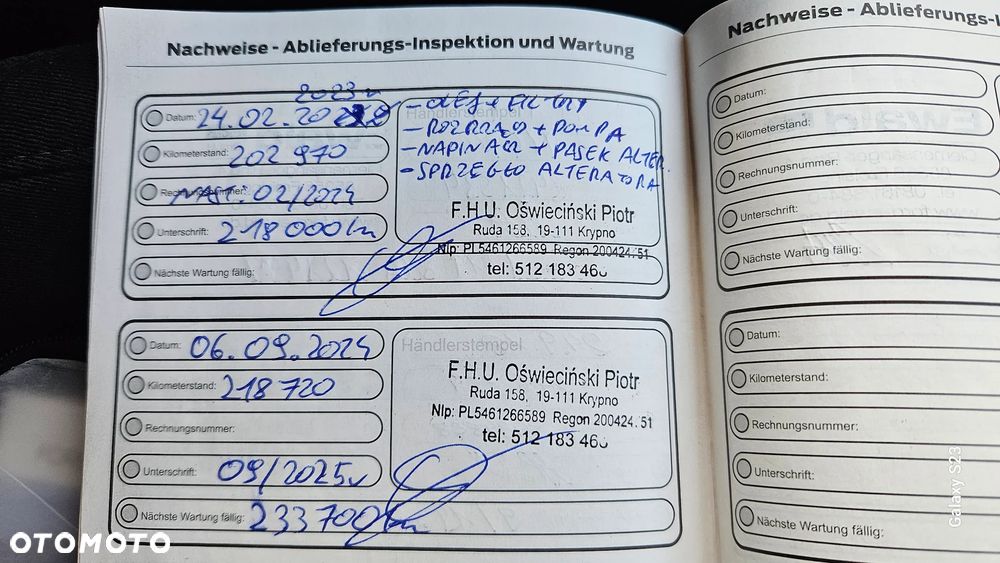 Nachweise - Ablieferungs-Inspektion und Wartung
2023r
Datum: 24.02.20
Kilometerstand: 202 970
Rechnungsnummer: NAST: 02/2024
Unterschrift: 218 000 km
Nächste Wartung fällig:
Händlerstempel
- OLEJ + FILTRY
- ROZRZĄD + POMPA
- NAPINACZ + PASEK ALTER.
- SPRZĘGŁO ALTERATORA
F.H.U. Oświeciński Piotr
Ruda 158, 19-111 Krypno
Nip: PL5461266589 Regon 200424.51
tel: 512 183 46
Datum: 06.09.2024
Kilometerstand: 218 720
Rechnungsnummer:
Unterschrift: 09/2025r
Nächste Wartung fällig: 233 700 km
Händlerstempel
F.H.U. Oświeciński Piotr
Ruda 158, 19-111 Krypno
Nip: PL5461266589 Regon 200424.51
tel: 512 183 46
Nachweise - Ablieferungs-I
Datum:
Kilometerstand:
Rechnungsnummer:
Unterschrift:
Nächste Wartung fällig:
Datum:
Kilometerstand:
Rechnungsnummer:
Unterschrift:
Nächste Wartung fällig:
Galaxy S23
OTOMOTO